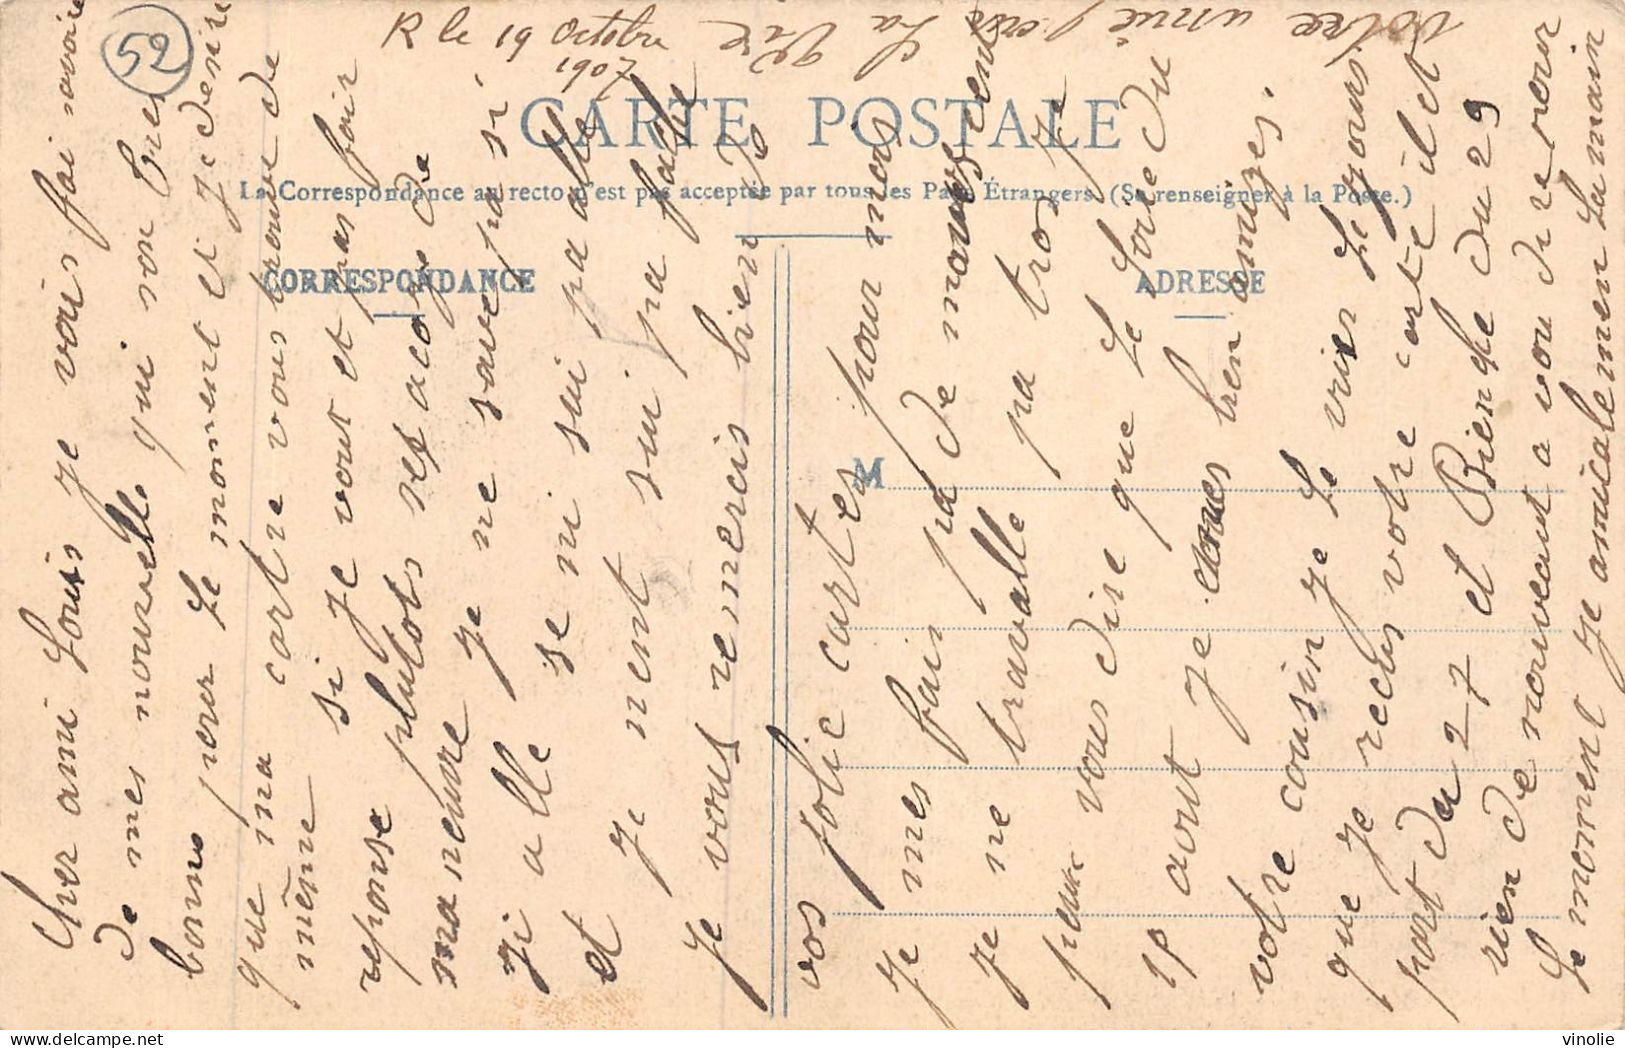 52
R le 19 octobre
1907
CARTE POSTALE
La Correspondance au recto n'est pas acceptée par tous les Pays Étrangers. (Se renseigner à la Poste.)
CORRESPONDANCE
ADRESSE
M
Cher ami Louis Je vois fai savoire
De mes nouvelle qui son tres
bonne pour Le moment et Je desire
que ma cartre vous trouve de
même si Je vout et pas fair
reponse plutots set acoze de
maneuvre Je ne save pas si
Ji alle se ni sui pa alle
et Je nent sui pa fache
Je vous remercis bien de
vos Jolie cartes pour moi
Je mes fair pa de mouves cent
Je ne travalle pa trop Je
peux vous dire que Le Soire du
1P aout Je bien amuzes.
votre cousin Je Le vries Le Jours
que Je recus votre carte il et
part du 27 et Biendre du 29
rien de nouveaut a vou dire pour
Le moment Je amicalement La main
votre amie pour La Vie
vinolie